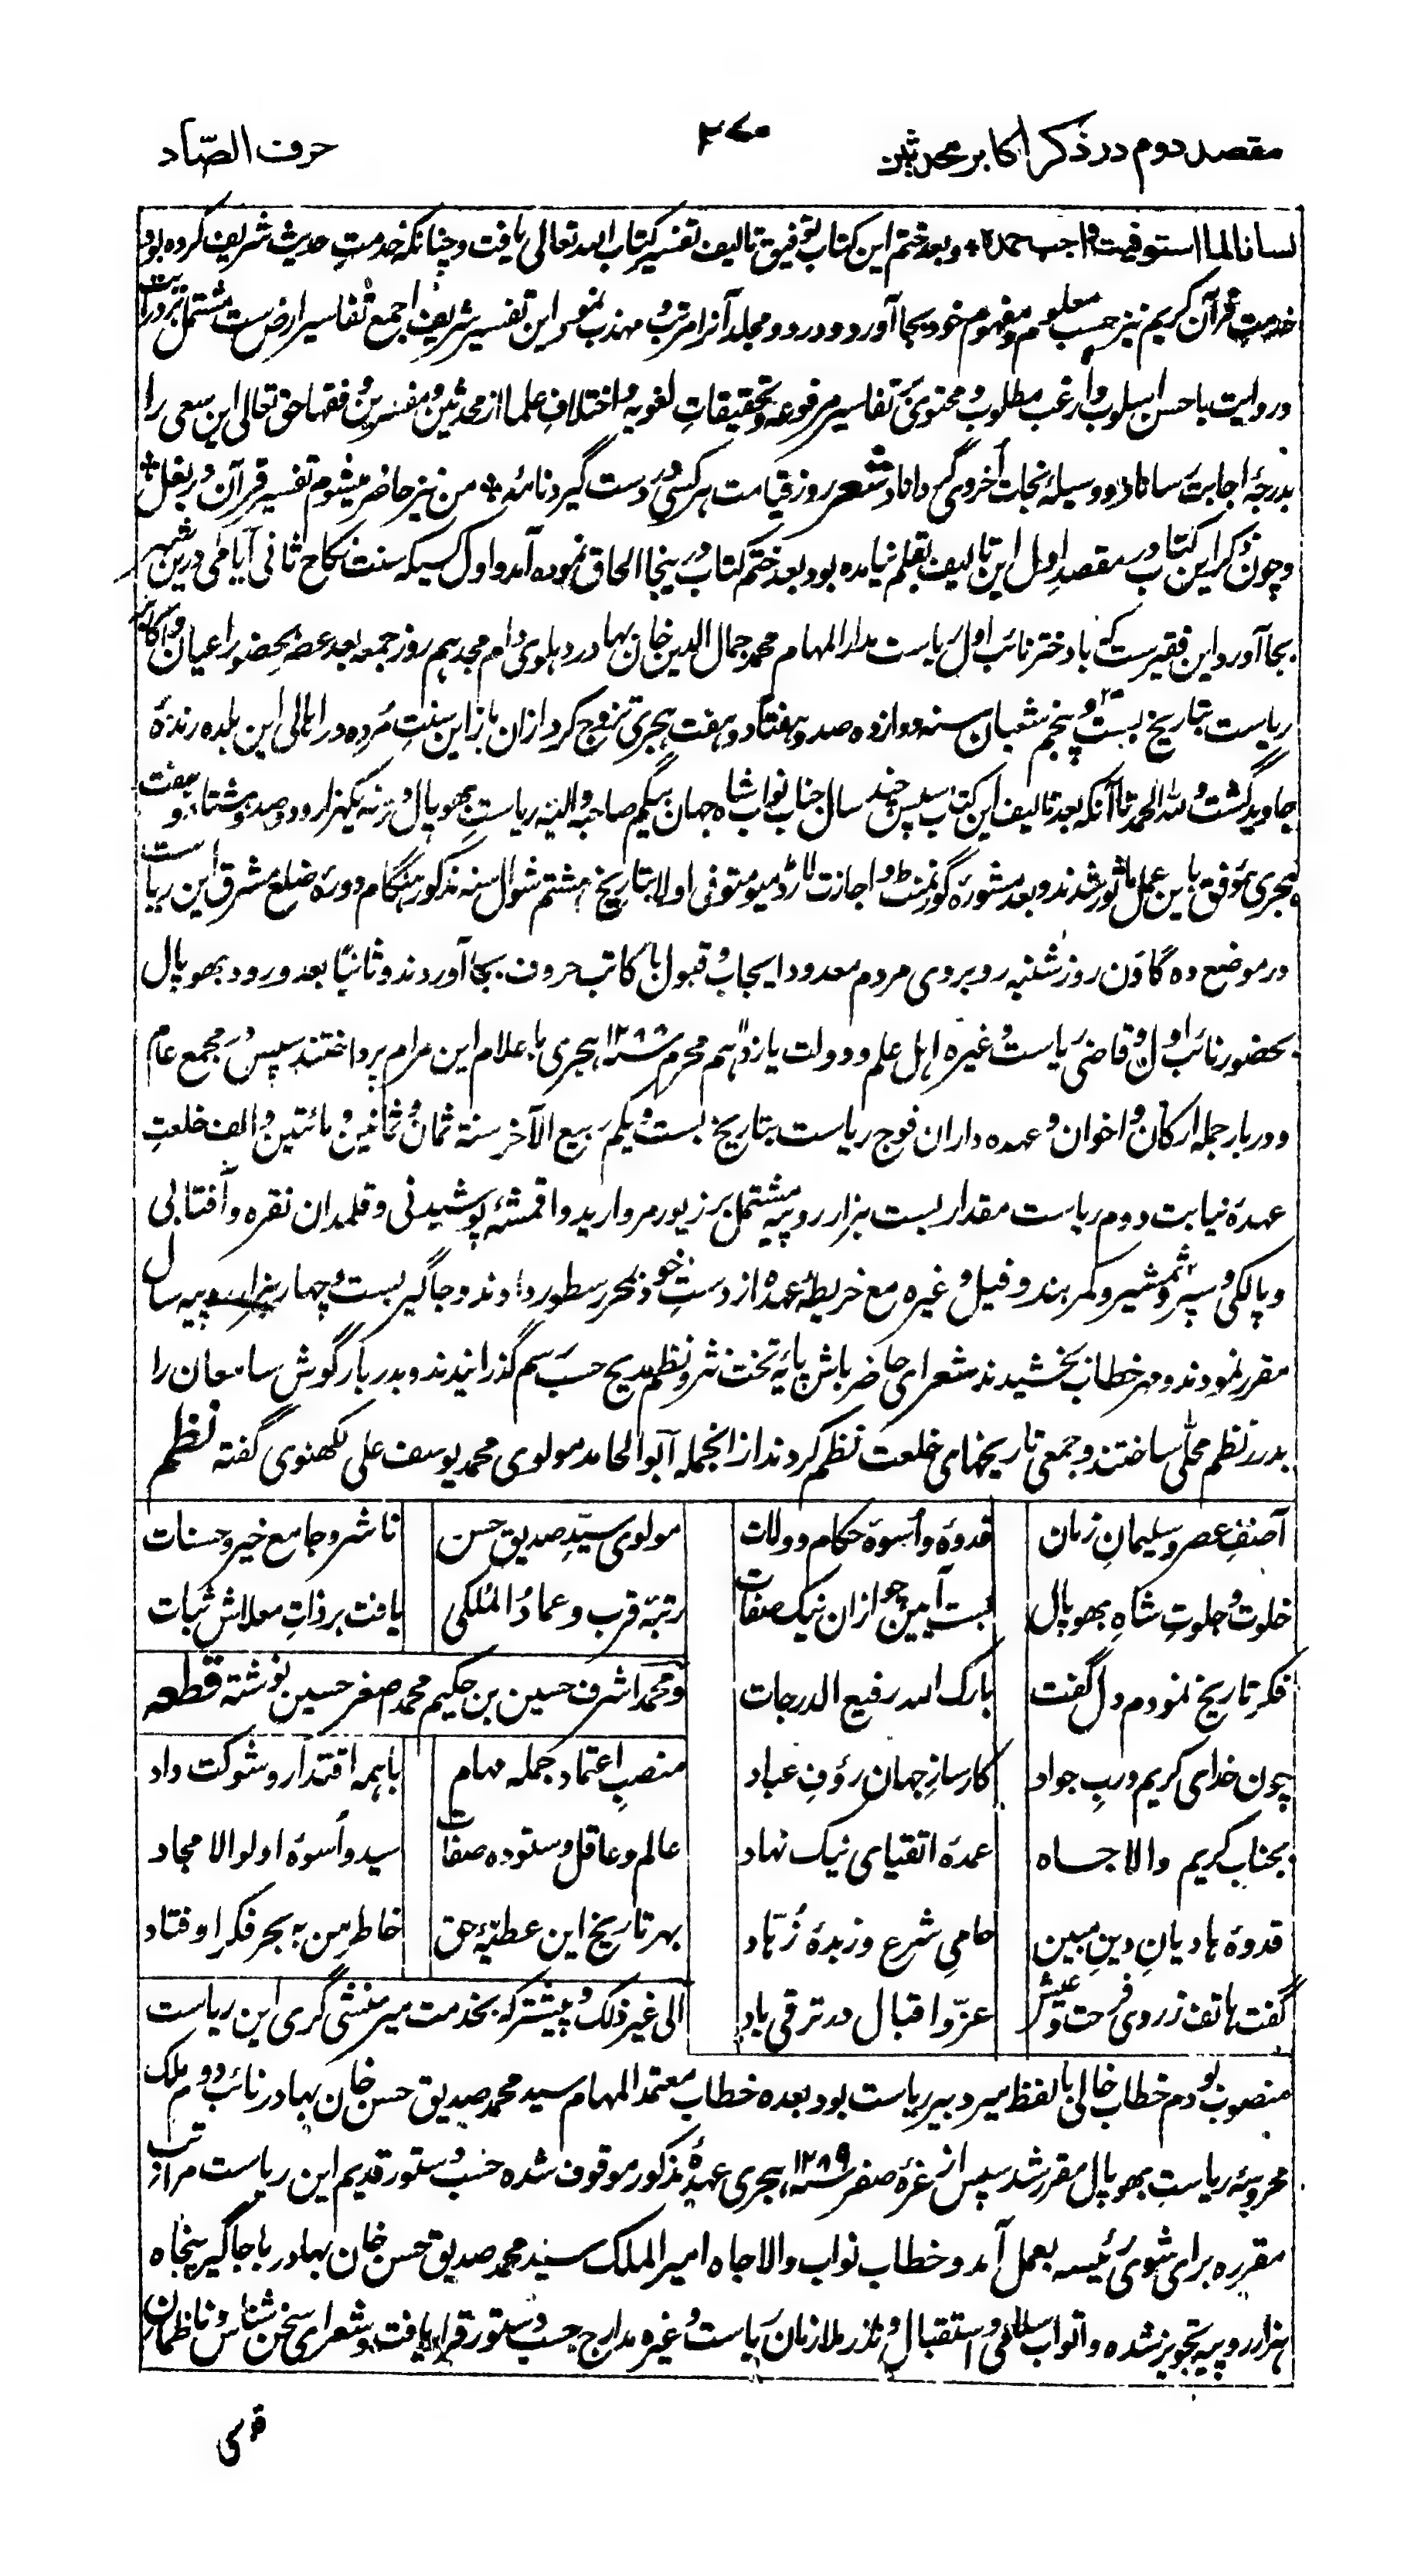 مقصد دوم در ذکر اکابر محدثین
۲۷۰
حرف الصّاد
لسانا لما استوفیت واجب حمده * و بعد ختم این کتاب توفیق تالیف تفسیر کتاب الله تعالی یافت و چنانکه خدمتِ حدیث شریف کرده بود
خدمتِ قرآن کریم نیز حسب معلوم و مفهوم خود بجا آورد و در دو مجلد آنرا مرتب و مهذب نمود این تفسیر شریف اجمع تفاسیر ارض ست مشتمل بر درایت
و روایت باحسن اسلوب وارغب مطلوب و محتوی بر تفاسیر مرفوعه و تحقیقاتِ لغویه و اختلافِ علما از محدثین و مفسرین و فقها حق تعالی این سعی را
بدرجهٔ اجابت رساناد و وسیلهٔ نجات اُخروی گرداناد شعر روز قیامت هر کسی در دست گیرد نامهٔ * من نیز حاضر میشوم تفسیر قرآن در بغل *
و چون ذکر این کتاب در مقصد اول این تالیف بقلم نیامده بود بعد ختم کتاب در ینجا الحاق نموده آمد و اول کسیکه سنت نکاح ثانی ایامی درین شهر
بجا آورد این فقیر ست که با دختر نائب اول ریاست مدار المهام محمد جمال الدین خان بهادر دهلوی دام مجدهم روز جمعه بعد عصر بحضور اعیان و اکابر
ریاست بتاریخ بست و پنجم شعبان سنه دوازده صد و هفتاد و هفت هجری تزوج کرد ازان باز این سنتِ مُرده در اهالی این بلده زندهٔ
جاوید گشت و لله الحمد تا آنکه بعد تالیف این کتاب سپس چند سال جناب نواب شاه جهان بیگم صاحبه والیه ریاستِ بهوپال در سنه یکهزار و دو صد و هشتاد و هفت
هجری موفق باین عمل ماثور شدند و بعد مشورهٔ گورنمنٹ و اجازت لارڈ میو متوفی اولا بتاریخ هشتم شوال سنه مذکور هنگام دورهٔ ضلع مشرق این ریاست
در موضع ده گاون روز شنبه روبروی مردم معدود ایجاب و قبول با کاتب حروف بجا آوردند و ثانیًا بعد ورود بهوپال
بحضور نائب اول و قاضیِ ریاست و غیره اهل علم و دولت یازدهم محرم سنه ۱۲۸۸ هجری با علام این مرام پرداختند سپس در مجمع عام
و دربار جمله ارکان و اخوان و عهده داران فوج ریاست بتاریخ بست و یکم ربیع الآخر سنة ثمان و ثمانین و مائتین و الف خلعتِ
عهدهٔ نیابت دوم ریاست مقدار بست هزار روپیه مشتمل بر زیور مروارید و اقمشهٔ پوشیدنی و قلمدان نقره و آفتابی
و پالکی و سپر و شمشیر و کمر بند و فیل و غیره مع خریطهٔ عهده از دستِ خود بمحرر سطور دادند و جاگیر بست و چهار هزار روپیه سال
مقرر نمودند و مهر خطاب بخشیدند شعرای حاضر باش پایهٔ تخت نثر و نظم مدیح حسب رسم گذرانیدند و بدربار گوش سامعان را
بدرر نظم محلّٰی ساختند و جمعی تاریخهای خلعت نظم کردند از انجمله آبو الحامد مولوی محمد یوسف علی لکهنوی گفته نظم
آصفِ عصر و سلیمانِ زمان قدوة و أسوة حکام و ولات مولوی سیّد صدیق حسن ناشر و جامع خیر و حسنات
خلوت و جلوتِ شاهِ بهوپال بست آیین چو ازان نیک صفات رتبهٔ قرب و عمادُ المُلکی یافت بر ذاتِ معلاش ثبات
فکرِ تاریخ نمودم دل گفت بارک الله رفیع الدرجات
و محمد اشرف حسین بن حکیم محمد صغر حسین نوشته قطعه
چون خدای کریم و ربِ جواد کارسازِ جهان رؤفِ عباد منصبِ اعتماد جمله مهام باهمه اقتدار و شوکت داد
بجنابِ کریم والا جاه عمدهٔ اتقیای نیک نهاد عالم و عاقل و ستوده صفات سید و اُسوهٔ اولو الامجاد
قدوهٔ هادیانِ دینِ مبین حامیِ شرع و زبدهٔ زُهّاد بهر تاریخ این عطیّهٔ حق خاطرِ من به بحرِ فکر اوفتاد
گفت هاتف ز روی فرحت و عیش عزّ و اقبال در ترقی باد
الی غیر ذلک و پیشتر که بخدمت میر منشی گری این ریاست
منصوب بودم خطاب خالی با لفظ میر دبیر ریاست بود بعده خطاب معتمد المهام سید محمد صدیق حسن خان بهادر نائب دوم ملک
محروسهٔ ریاستِ بهوپال مقرر شد سپس از غرهٔ صفر سنه ۱۲۸۹ هجری عهدهٔ مذکور موقوف شده حسب دستور قدیم این ریاست مراتب
مقرره برای شویِ رئیسه بعمل آمد و خطاب نواب والا جاه امیر الملک سید محمد صدیق حسن خان بهادر با جاگیر پنجاه
هزار روپیه تجویز شده و اتواب سلامی و استقبال و نذر ملازمان ریاست و غیره مدارج حسب دستور قرار یافت و شعرای سخن شناس و ناظمانِ